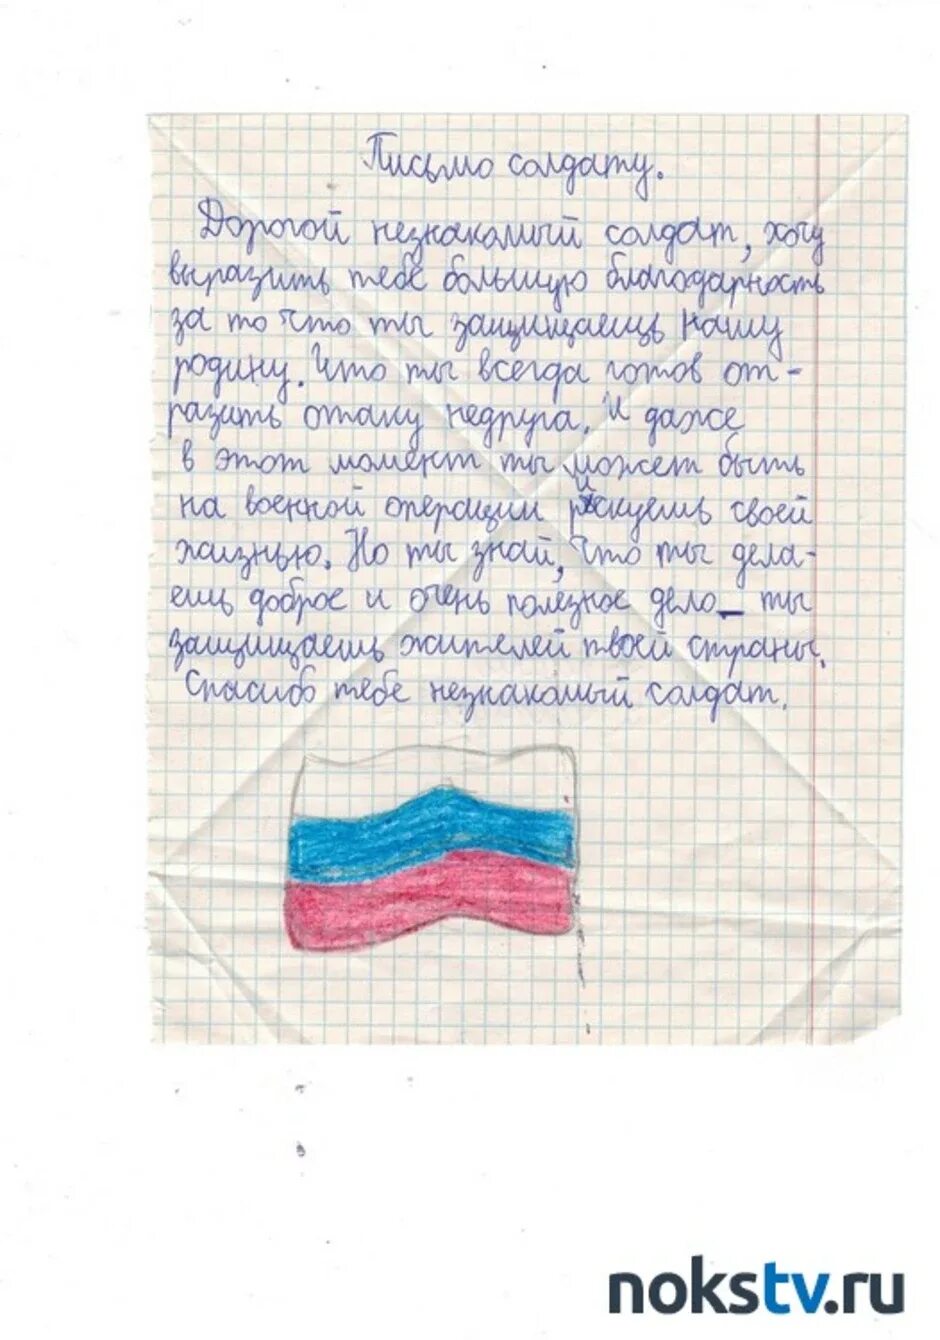 Письмо солдату.
Дорогой незнакомый солдат, хочу
выразить тебе большую благодарность
за то что ты защищаешь нашу
родину. Что ты всегда готов от-
разить атаку недруга. И даже
в этот момент ты может быть
на военной операции рискуешь своей
жизнью. Но ты знай, что ты дела-
ешь доброе и очень полезное дело_ ты
защищаешь жителей твоей страны.
Спасибо тебе незнакомый солдат.
nokstv.ru